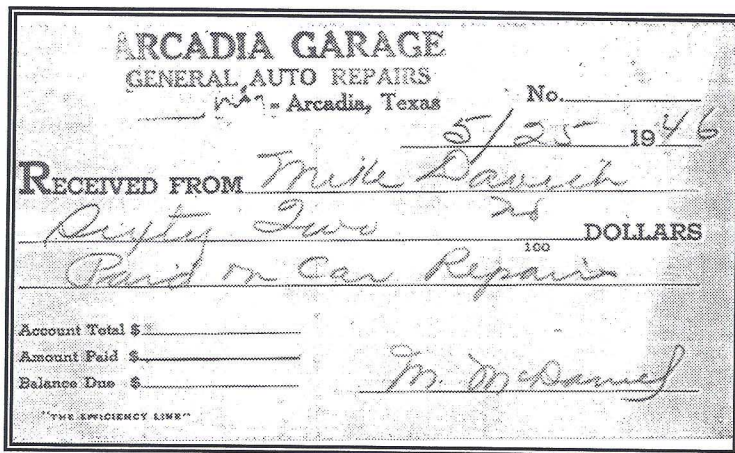 ARCADIA GARAGE
GENERAL AUTO REPAIRS
- Arcadia, Texas
No.
5/25 1946
RECEIVED FROM Mike Davich
Sixty Two 20/100 DOLLARS
Paid on Car Repairs
Account Total $
Amount Paid $
Balance Due $
M. McDaniel
"THE EFFICIENCY LINE"